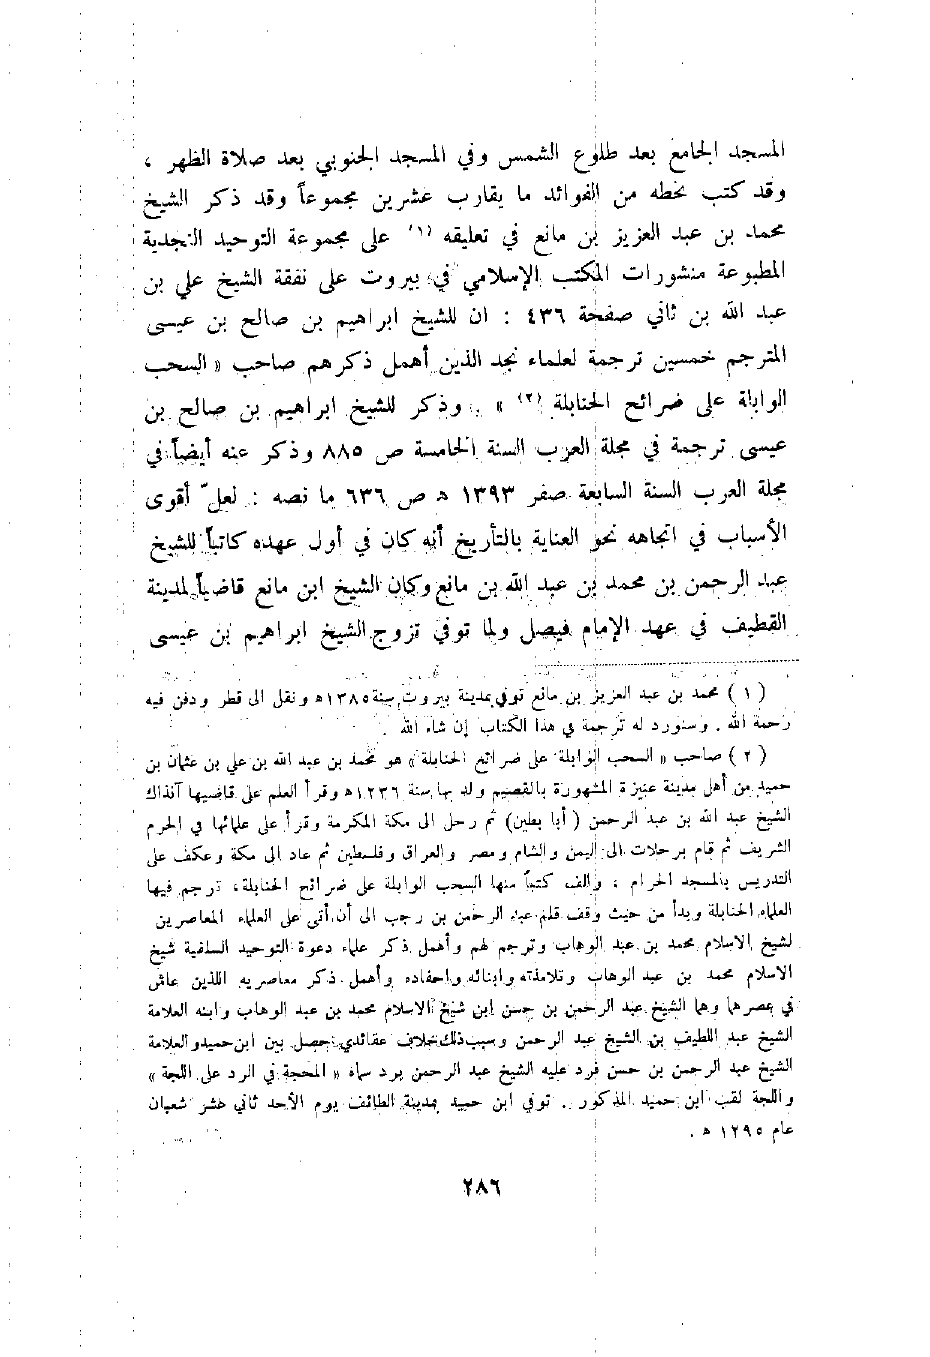 المسجد الجامع بعد طلوع الشمس وفي المسجد الجنوبي بعد صلاة الظهر ،
وقد كتب بخطه من الفوائد ما يقارب عشرين مجموعاً وقد ذكر الشيخ
محمد بن عبد العزيز بن مانع في تعليقه (١) على مجموعة التوحيد النجدية
المطبوعة منشورات المكتب الإسلامي في بيروت على نفقة الشيخ علي بن
عبد الله بن ثاني صفحة ٤٣٦ : ان للشيخ ابراهيم بن صالح بن عيسى
المترجم خمسين ترجمة لعلماء نجد الذين أهمل ذكرهم صاحب « السحب
الوابلة على ضرائح الحنابلة (٢) » . وذكر للشيخ ابراهيم بن صالح بن
عيسى ترجمة في مجلة العرب السنة الخامسة ص ٨٨٥ وذكر عنه أيضاً في
مجلة العرب السنة السابعة صفر ١٣٩٣ ه ص ٦٣٦ ما نصه : لعلّ أقوى
الأسباب في اتجاهه نحو العناية بالتأريخ أنه كان في أول عهده كاتباً للشيخ
عبد الرحمن بن محمد بن عبد الله بن مانع وكان الشيخ ابن مانع قاضياً لمدينة
القطيف في عهد الإمام فيصل ولما توفي تزوج الشيخ ابراهيم بن عيسى
( ١ ) محمد بن عبد العزيز بن مانع توفي بمدينة بيروت سنة ١٣٨٥ه ونقل الى قطر ودفن فيه
رحمة الله . وسنورد له ترجمة في هذا الكتاب إن شاء الله .
( ٢ ) صاحب « السحب الوابلة على ضرائح الحنابلة » هو محمد بن عبد الله بن علي بن عثمان بن
حميد من أهل مدينة عنيزة المشهورة بالقصيم ولد بها سنة ١٢٣٦ه وقرأ العلم على قاضيها آنذاك
الشيخ عبد الله بن عبد الرحمن ( أبا بطين ) ثم رحل الى مكة المكرمة وقرأ على علمائها في الحرم
الشريف ثم قام برحلات الى اليمن والشام ومصر والعراق وفلسطين ثم عاد الى مكة وعكف على
التدريس بالمسجد الحرام ، والف كتباً منها السحب الوابلة على ضرائح الحنابلة ، ترجم فيها
العلماء الحنابلة وبدأ من حيث وقف قلم عبد الرحمن بن رجب الى أن أتى على العلماء المعاصرين
لشيخ الاسلام محمد بن عبد الوهاب وترجم لهم وأهمل ذكر علماء دعوة التوحيد السلفية شيخ
الاسلام محمد بن عبد الوهاب وتلامذته وابنائه واحفاده وأهمل ذكر معاصريه اللذين عاش
في عصرهما وهما الشيخ عبد الرحمن بن حسن ابن شيخ الاسلام محمد بن عبد الوهاب وابنه العلامة
الشيخ عبد اللطيف بن الشيخ عبد الرحمن وسبب ذلك خلاف عقائدي حصل بين ابن حميد والعلامة
الشيخ عبد الرحمن بن حسن فرد عليه الشيخ عبد الرحمن برد سماه « المحجة في الرد على اللجة »
واللجة لقب ابن حميد المذكور . توفي ابن حميد بمدينة الطائف يوم الأحد ثاني عشر شعبان
عام ١٢٩٥ ه .
٢٨٦